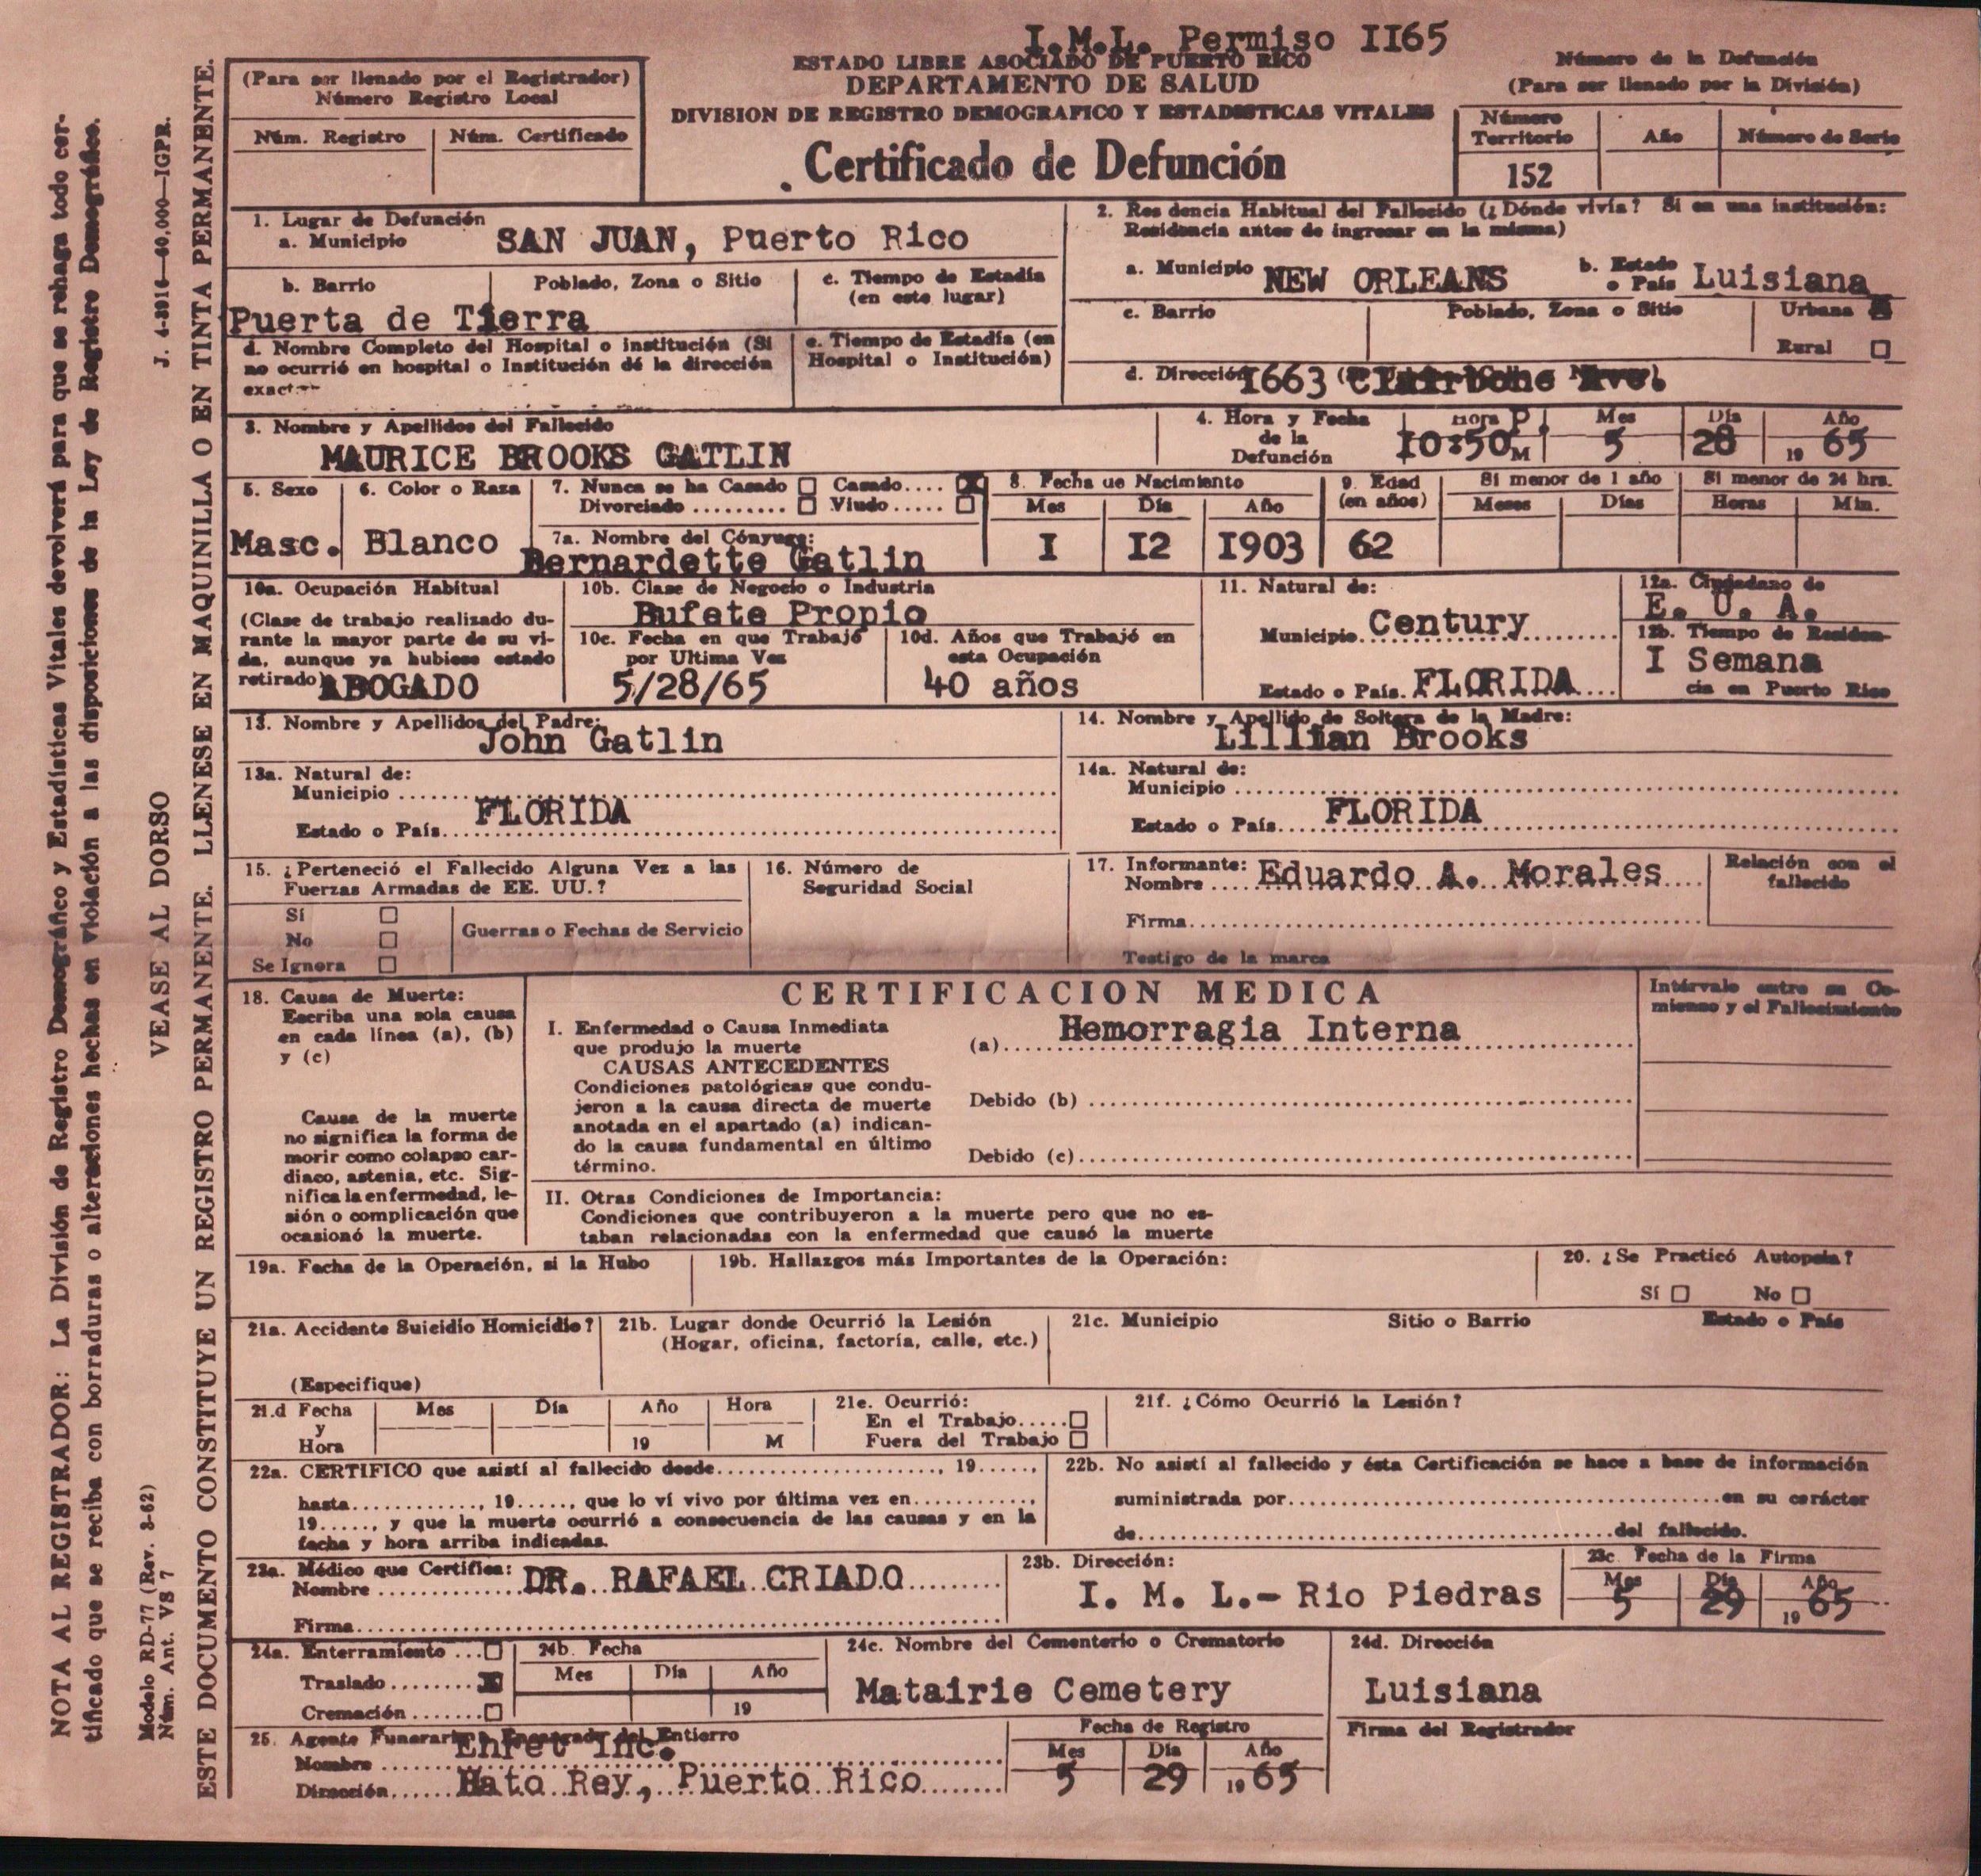 I.M.L. Permiso II65
ESTADO LIBRE ASOCIADO DE PUERTO RICO
DEPARTAMENTO DE SALUD
DIVISION DE REGISTRO DEMOGRAFICO Y ESTADISTICAS VITALES
Certificado de Defunción
(Para ser llenado por el Registrador)
Número Registro Local
Núm. Registro Núm. Certificado
Número de la Defunción
(Para ser llenado por la División)
Número Territorio Año Número de Serie
152
1. Lugar de Defunción
a. Municipio SAN JUAN, Puerto Rico
b. Barrio Poblado, Zona o Sitio c. Tiempo de Estadía
(en este lugar)
Puerta de Tierra
d. Nombre Completo del Hospital o institución (Si
no ocurrió en hospital o Institución dé la dirección
exacta
e. Tiempo de Estadía (en
Hospital o Institución)
2. Res dencia Habitual del Fallecido (¿Dónde vivía? Si en una institución:
Residencia antes de ingresar en la misma)
a. Municipio NEW ORLEANS b. Estado
o País Luisiana
c. Barrio Poblado, Zona o Sitio Urbana
Rural
d. Dirección I663 Clairbone Ave.
3. Nombre y Apellidos del Fallecido
MAURICE BROOKS GATLIN
4. Hora y Fecha
de la
Defunción
Hora P. Mes Día Año
I0:50 M 5 28 19 65
5. Sexo 6. Color o Raza 7. Nunca se ha Casado Casado....
Divorciado ......... Viudo.....
Masc. Blanco
7a. Nombre del Cónyuge:
Bernardette Gatlin
8. Fecha de Nacimiento
Mes Día Año
I I2 I903
9. Edad
(en años)
62
Si menor de 1 año Si menor de 24 hrs.
Meses Días Horas Min.
10a. Ocupación Habitual
(Clase de trabajo realizado du-
rante la mayor parte de su vi-
da, aunque ya hubiese estado
retirado ABOGADO
10b. Clase de Negocio o Industria
Bufete Propio
10c. Fecha en que Trabajó
por Ultima Vez
5/28/65
10d. Años que Trabajó en
esta Ocupación
40 años
11. Natural de:
Municipio Century
Estado o País. FLORIDA
12a. Ciudadano de
E. U. A.
12b. Tiempo de Residen-
I Semana
cia en Puerto Rico
13. Nombre y Apellidos del Padre:
John Gatlin
14. Nombre y Apellido de Soltera de la Madre:
Lillian Brooks
13a. Natural de:
Municipio
FLORIDA
Estado o País
14a. Natural de:
Municipio
FLORIDA
Estado o País
15. ¿Perteneció el Fallecido Alguna Vez a las
Fuerzas Armadas de EE. UU.?
Sí
No
Se Ignora
Guerras o Fechas de Servicio
16. Número de
Seguridad Social
17. Informante:
Nombre Eduardo A. Morales
Firma
Testigo de la marca
Relación con el
fallecido
18. Causa de Muerte:
Escriba una sola causa
en cada línea (a), (b)
y (c)
Causa de la muerte
no significa la forma de
morir como colapso car-
diaco, astenia, etc. Sig-
nifica la enfermedad, le-
sión o complicación que
ocasionó la muerte.
CERTIFICACION MEDICA
Intérvalo entre su Co-
mienzo y el Fallecimiento
I. Enfermedad o Causa Inmediata
que produjo la muerte
(a) Hemorragia Interna
CAUSAS ANTECEDENTES
Condiciones patológicas que condu-
jeron a la causa directa de muerte
anotada en el apartado (a) indican-
do la causa fundamental en último
término.
Debido (b)
Debido (c)
II. Otras Condiciones de Importancia:
Condiciones que contribuyeron a la muerte pero que no es-
taban relacionadas con la enfermedad que causó la muerte
19a. Fecha de la Operación, si la Hubo
19b. Hallazgos más Importantes de la Operación:
20. ¿Se Practicó Autopsia?
Sí No
21a. Accidente Suicidio Homicidio?
(Especifique)
21b. Lugar donde Ocurrió la Lesión
(Hogar, oficina, factoría, calle, etc.)
21c. Municipio Sitio o Barrio Estado o País
21.d Fecha
y
Hora
Mes Día Año Hora
19 M
21e. Ocurrió:
En el Trabajo.....
Fuera del Trabajo
21f. ¿Cómo Ocurrió la Lesión?
22a. CERTIFICO que asistí al fallecido desde...................., 19.....,
hasta............, 19....., que lo ví vivo por última vez en...........,
19....., y que la muerte ocurrió a consecuencia de las causas y en la
fecha y hora arriba indicadas.
22b. No asistí al fallecido y ésta Certificación se hace a base de información
suministrada por........................................en su carácter
de............................................del fallecido.
23a. Médico que Certifica:
Nombre DR. RAFAEL CRIADO
Firma
23b. Dirección:
I. M. L.- Rio Piedras
23c Fecha de la Firma
Mes Día Año
5 29 19 65
24a. Enterramiento ...
Traslado ........
Cremación .......
24b. Fecha
Mes Día Año
19
24c. Nombre del Cementerio o Crematorio
Matairie Cemetery
24d. Dirección
Luisiana
25. Agente Funerario o Encargado del Entierro
Nombre Enret Inc.
Dirección Hato Rey, Puerto Rico
Fecha de Registro
Mes Día Año
5 29 19 65
Firma del Registrador
NOTA AL REGISTRADOR: La División de Registro Demográfico y Estadísticas Vitales devolverá para que se rehaga todo cer-
tificado que se reciba con borraduras o alteraciones hechas en violación a las disposiciones de la Ley de Registro Demográfico.
Modelo RD-77 (Rev. 3-62)
Núm. Ant. VS 7
VEASE AL DORSO
J. 4-3916—60,000—IGPR.
ESTE DOCUMENTO CONSTITUYE UN REGISTRO PERMANENTE. LLENESE EN MAQUINILLA O EN TINTA PERMANENTE.